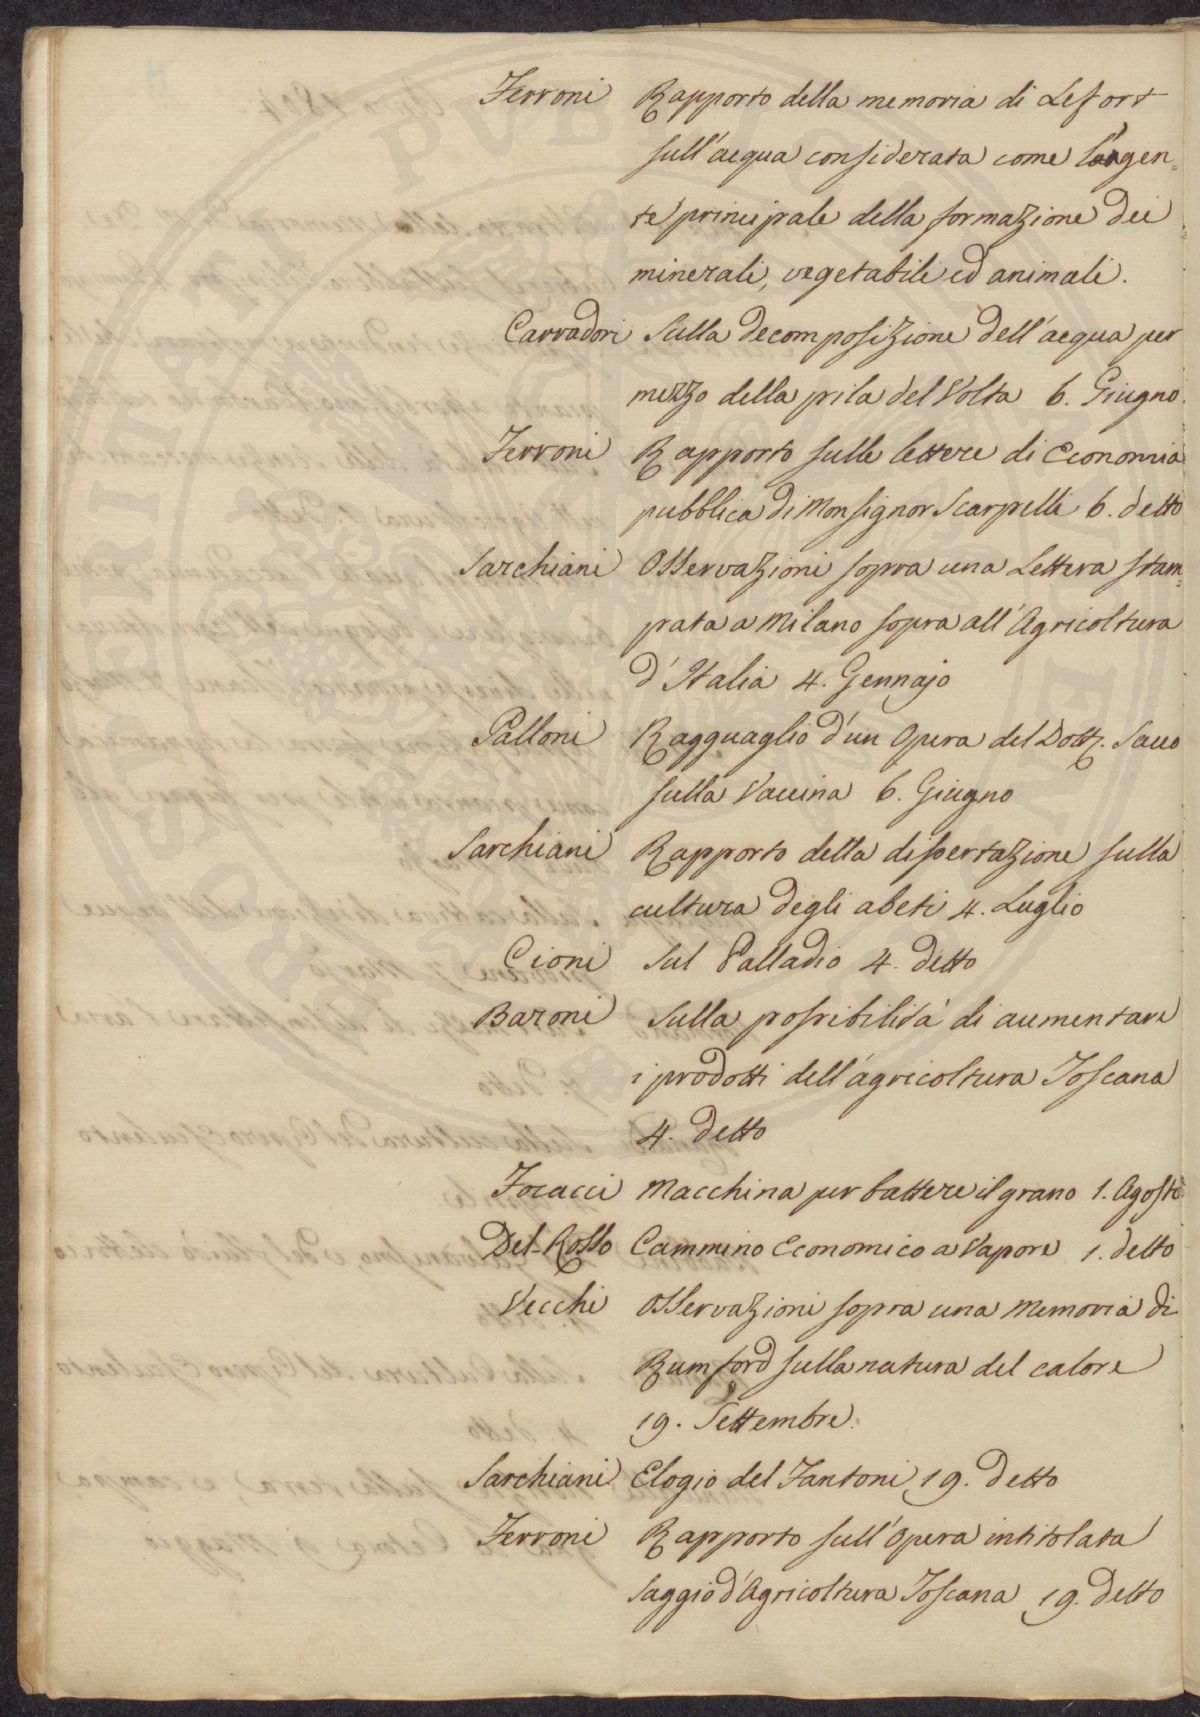 Ferroni Rapporto della memoria di Lefort
sull'acqua considerata come l'agen=
te principale della formazione dei
minerali, vegetabili ed animali.
Carradori Sulla decomposizione dell'acqua per
mezzo della pila del Volta 6. Giugno.
Ferroni Rapporto sulle lettere di Economia
pubblica di Monsignor Scarpelli 6. detto
Sarchiani Osservazioni sopra una Lettera stam=
pata a Milano sopra all'Agricoltura
d'Italia 4. Gennajo
Palloni Ragguaglio d'un Opera del Dott. Sacco
sulla Vaccina 6. Giugno
Sarchiani Rapporto della dissertazione sulla
cultura degli abeti 4. Luglio
Cioni Sul Palladio 4. detto
Baroni Sulla possibilità di aumentare
i prodotti dell'agricoltura Toscana
4. detto
Focacci Macchina per battere il grano 1. Agosto
Del-Rosso Cammino Economico a Vapore 1. detto
Vecchi Osservazioni sopra una Memoria di
Rumford sulla natura del calore
19. Settembre.
Sarchiani Elogio del Fantoni 19. detto
Ferroni Rapporto sull'Opera intitolata
Saggio d'Agricoltura Toscana 19. detto